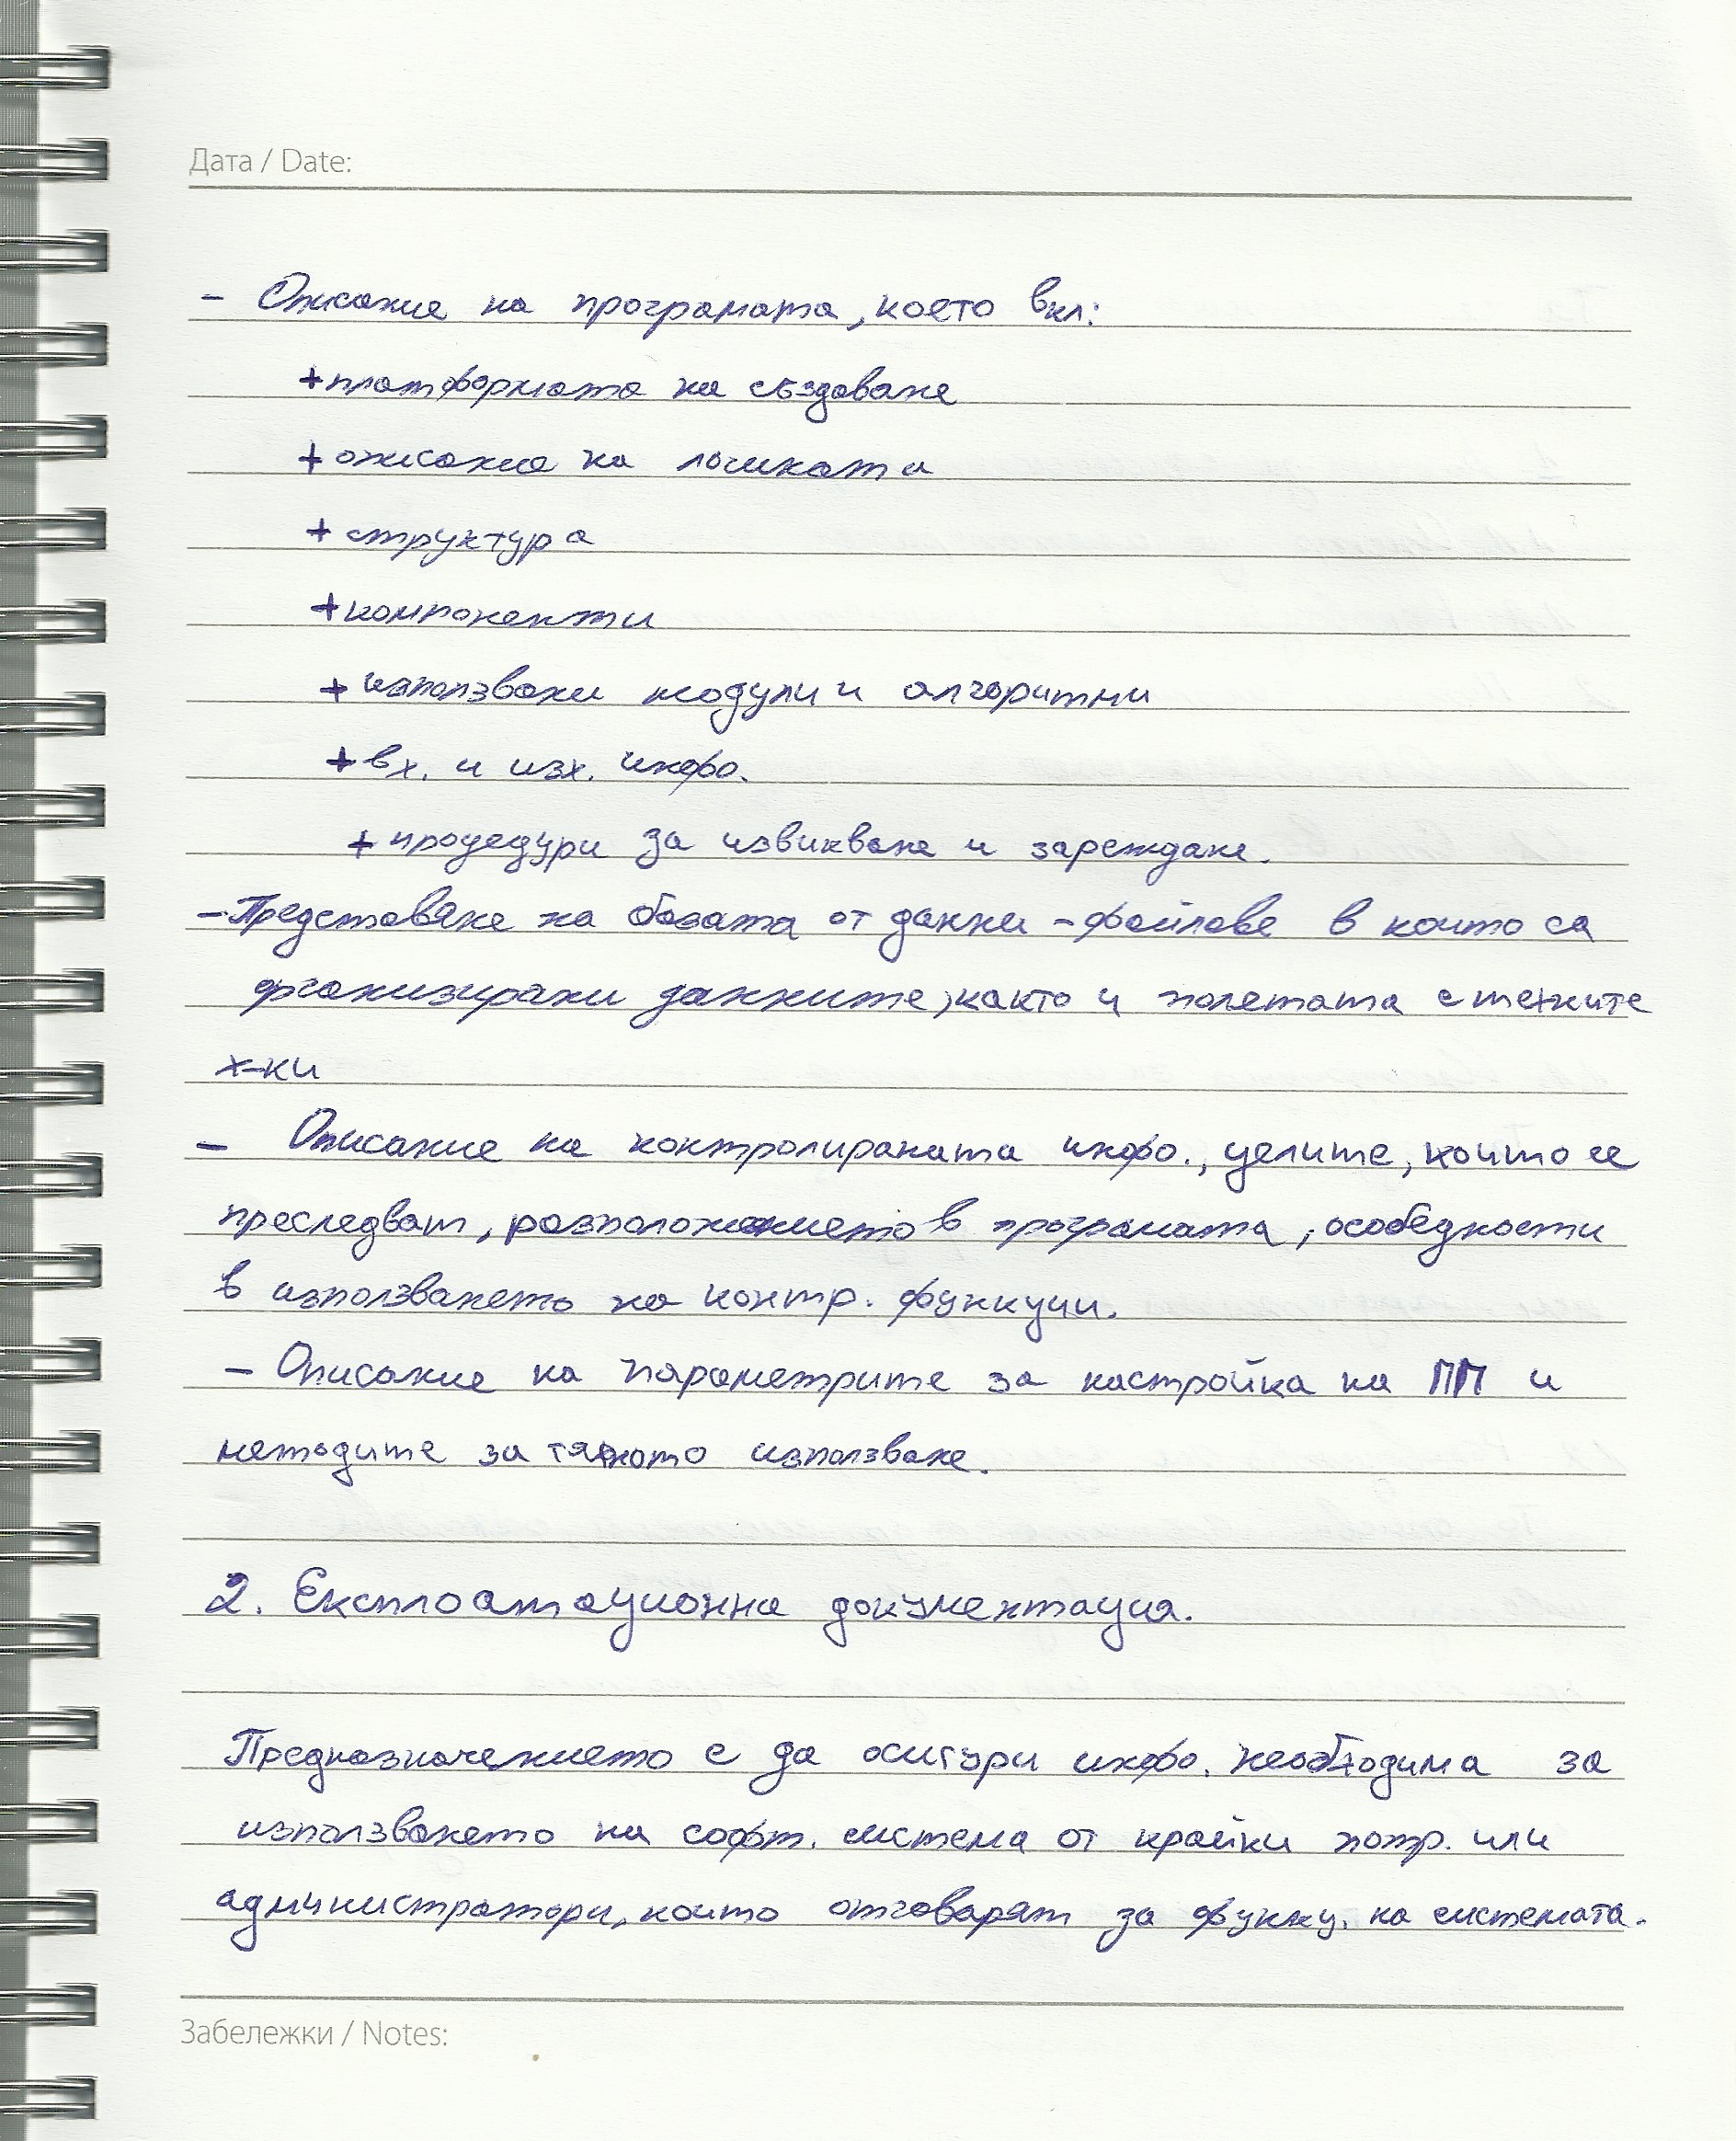 Дата / Date:
- Описание на програмата, което вкл:
+ платформата на създаване
+ описание на логиката
+ структура
+ компоненти
+ използвани модули и алгоритми
+ вх. и изх. инфо.
+ процедури за извикване и зареждане.
- Представяне на базата от данни - файлове в които са
организирани данните, както и полетата с техните
х-ки
- Описание на контролираната инфо., целите, които се
преследват, разположението в програмата, особедности
в използването на контр. функции.
- Описание на параметрите за настройка на ПП и
методите за тяхното използване.
2. Експлоатационна документация.
Предназначението е да осигури инфо. необходима за
използването на софт. система от крайни потр. или
администратори, които отговарят за функц. на системата.
Забележки / Notes: